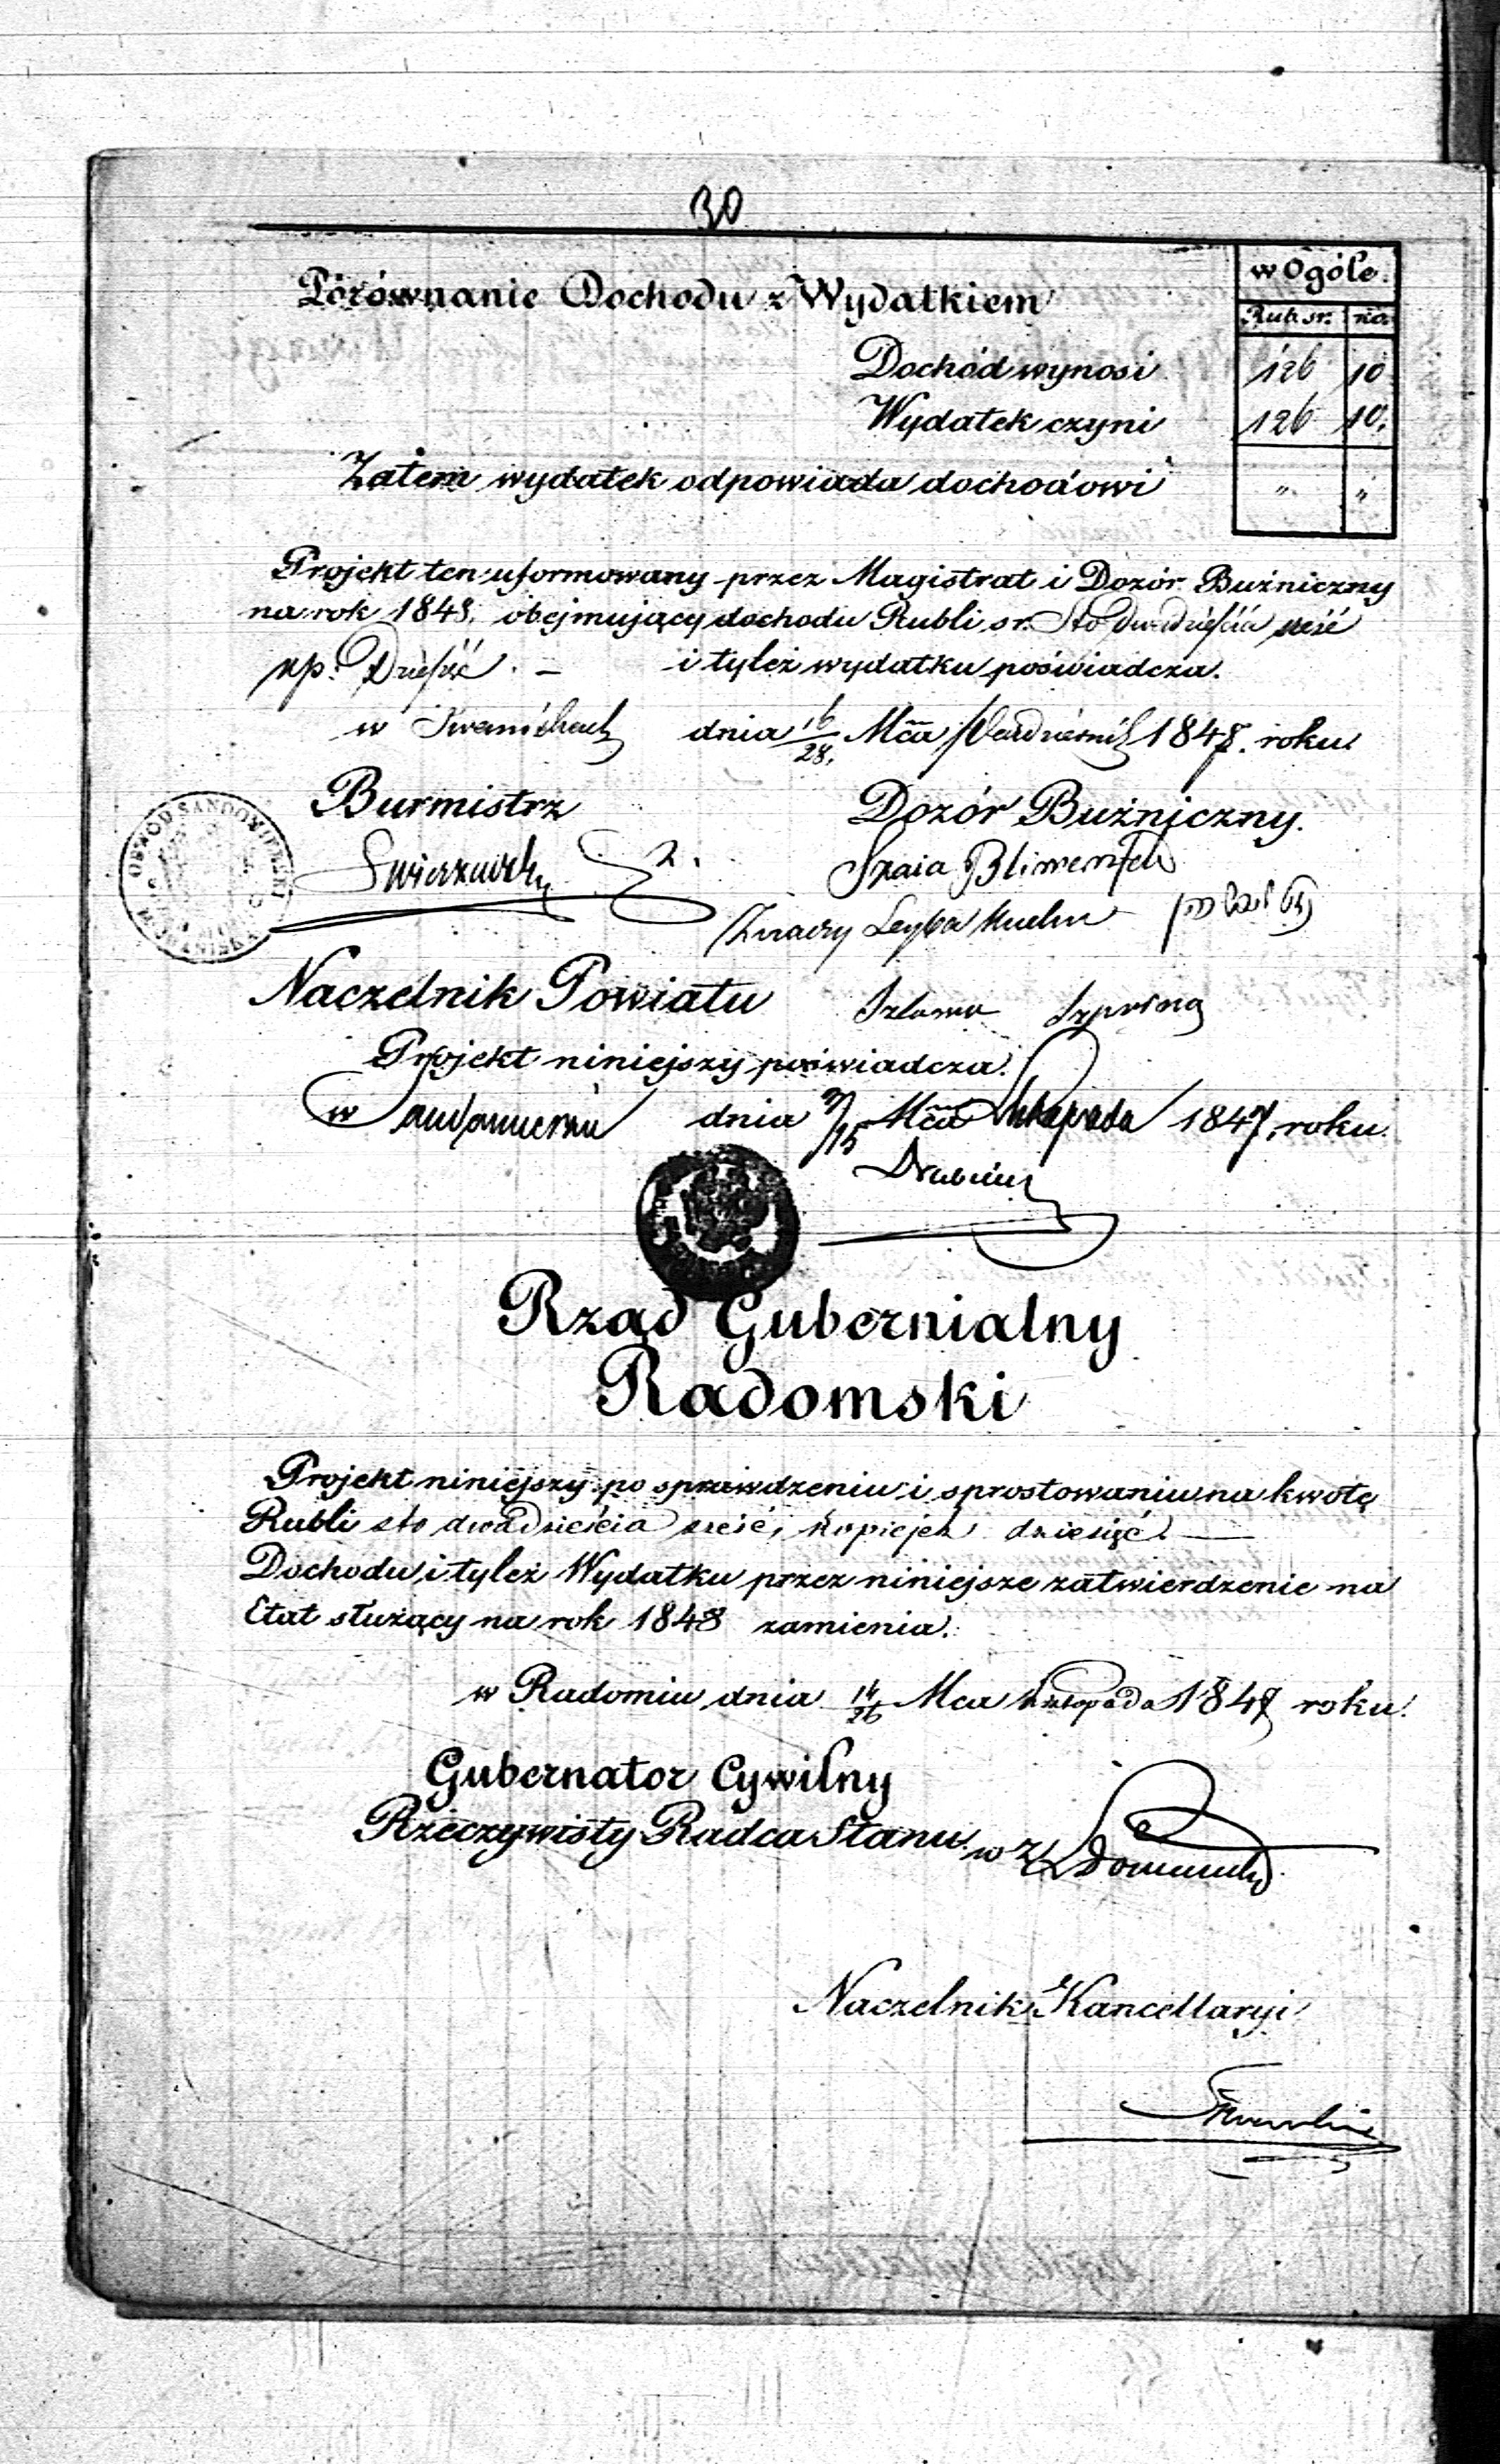 30
Porównanie Dochodu z Wydatkiem
w Ogóle.
Rub. sr. | ko.
Dochód wynosi 126 10
Wydatek czyni 126 10.
Zatem wydatek odpowiada dochodowi " "
Projekt ten uformowany przez Magistrat i Dozór Bużniczny
na rok 1848. obejmujący dochodu Rubli sr. Sto dwadzieścia sześć
kp. Dziesięć. — i tyleż wydatku poświadcza.
w Iwaniskach dnia 16/28. Mca Października 1847. roku.
Burmistrz
Dozór Bużniczny.
OBWÓD SANDOMIERSKI
Szaia Blimenfeld
Leyba
Naczelnik Powiatu
Szlama Szpring
Projekt niniejszy poświadcza.
w Sandomierzu dnia 3/15 Mca Listopada 1847. roku.
Rząd Gubernialny
Radomski
Projekt niniejszy po sprawdzeniu i sprostowaniu na kwotę
Rubli sto dwadzieścia sześć, kopiejek dziesięć —
Dochodu i tyleż Wydatku przez niniejsze zatwierdzenie na
Etat służący na rok 1848 zamienia.
w Radomiu dnia 14/26 Mca Listopada 1847 roku.
Gubernator Cywilny
Rzeczywisty Radca Stanu w z
Naczelnik Kancellaryi